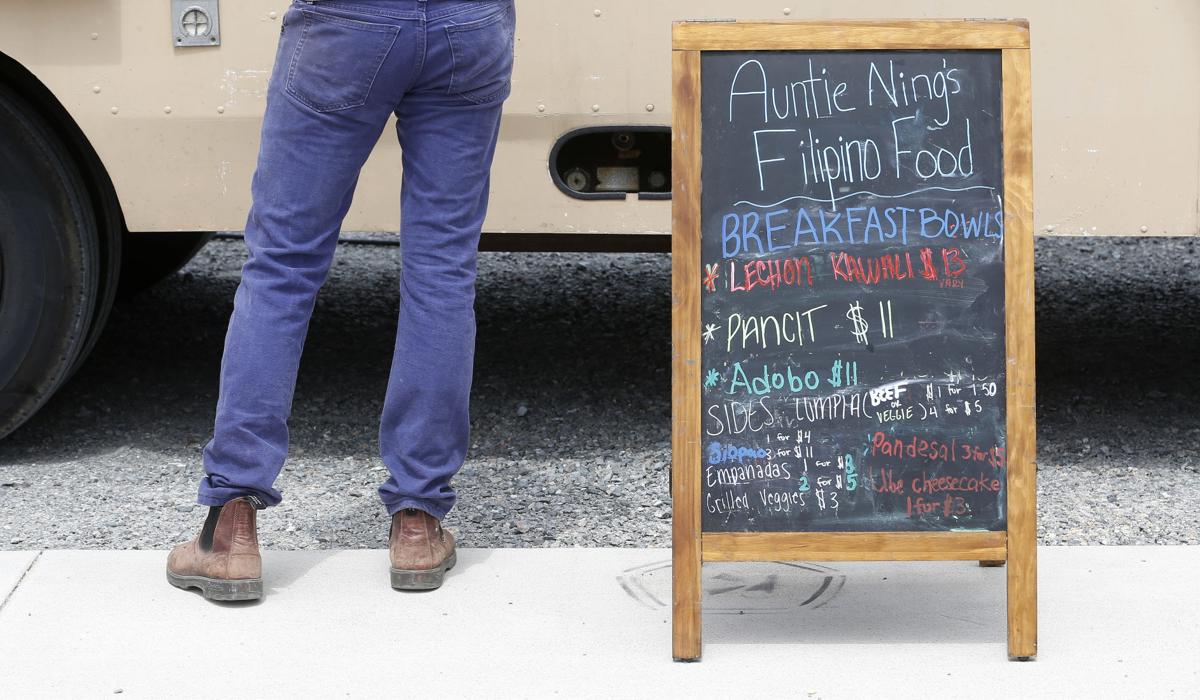 Auntie Ning's
Filipino Food
BREAKFAST BOWLS
* LECHON KAWALI $13
* PANCIT $11
* Adobo $11
SIDES LUMPIA (BEEF or VEGGIE) 1 for 1.50
4 for $5
Siopao 1 for $4
3 for $11
Pandesal 3 for $5
Empanadas 1 for $3
2 for $5
Ube cheesecake
1 for $3
Grilled Veggies $3